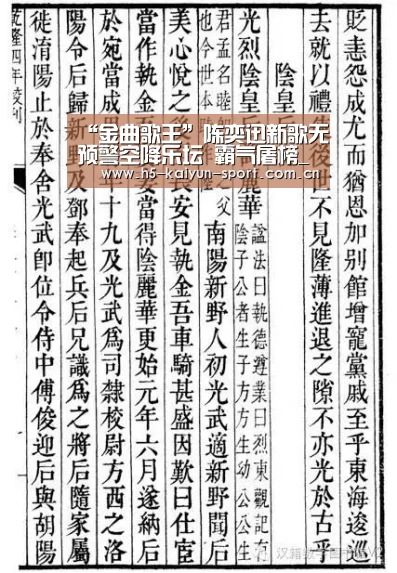 “金曲歌王”陈奕迅新歌无
预警空降乐坛 霸气屠榜_
www.h5-kaiyun-sport.com.cn
貶恚怨成尤而猶恩加別館增寵黨戚至乎東海逡巡
去就以禮後世不見隆薄進退之隙不亦光於古乎
陰皇
光烈陰皇麗華
諡法曰執德遵業曰烈東觀記有
陰子公者生子方方生幼公公生
君孟名睦之父
也今世本睦
南陽新野人初光武適新野聞后
美心悅之長安見執金吾車騎甚盛因歎曰仕宦
當作執金妻當得陰麗華更始元年六月遂納后
於宛當成年十九及光武爲司隸校尉方西之洛
陽令后歸新野及鄧奉起兵后兄識爲之將后隨家屬
徙淯陽止於奉舍光武卽位令侍中傅俊迎后與胡陽
乾隆四年校刊